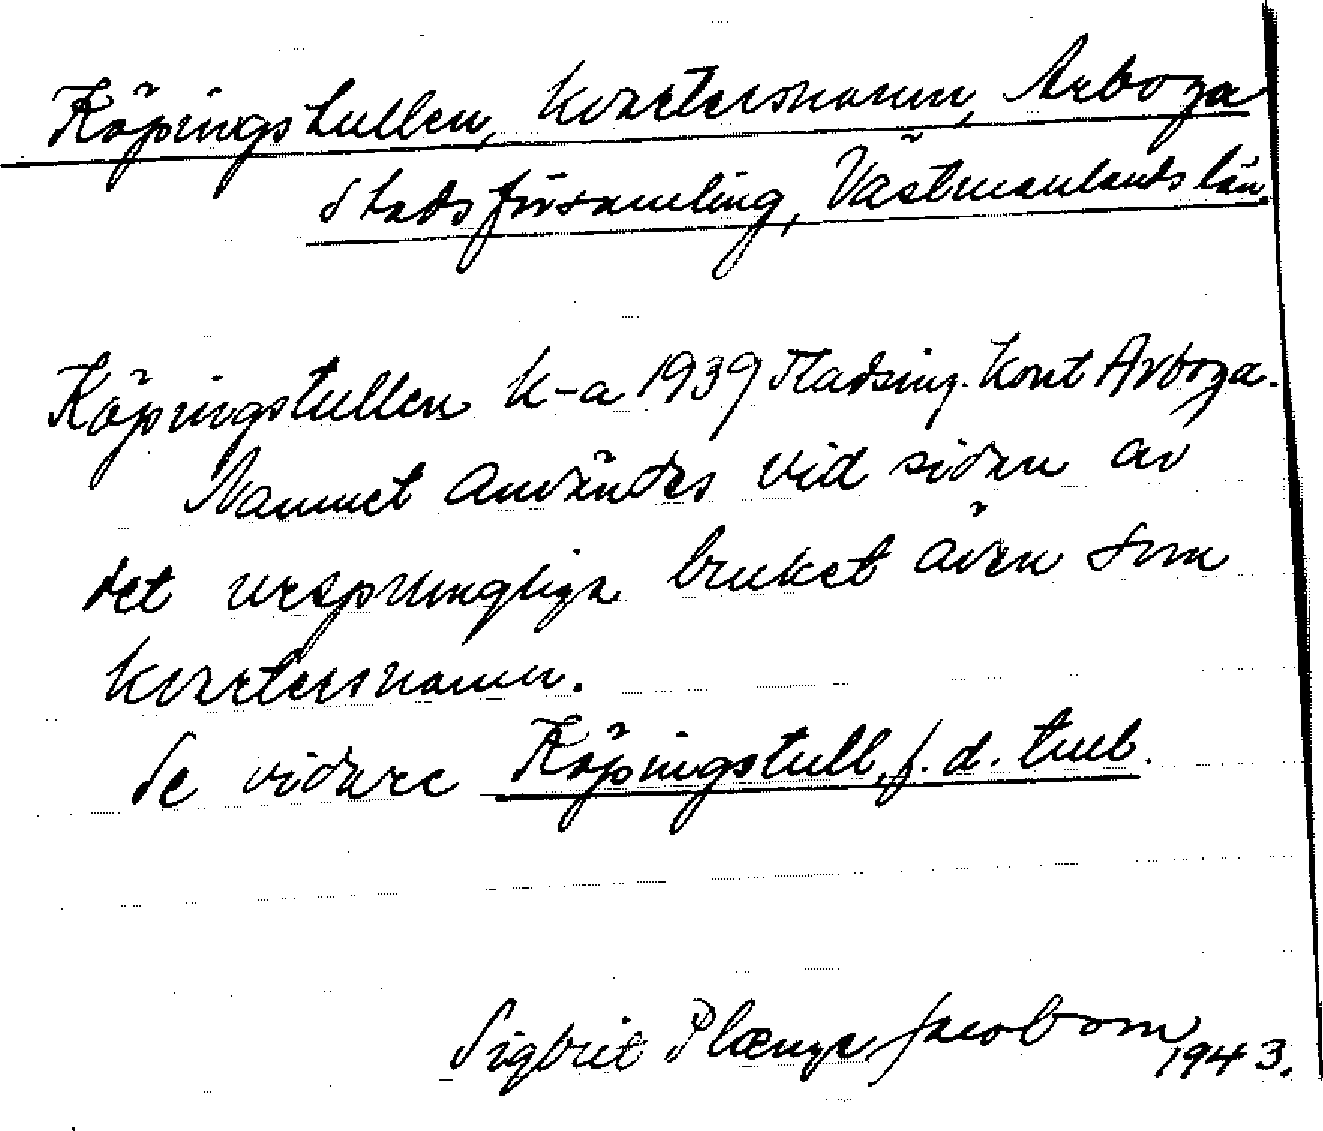 Köpingstullen, kvartersnamn, Arboga
Stadsförsamling, Västmanlands län.
Köpingstullen k-a 1939 Stadsing. kont Arboga.
Namnet användes vid sidan av
det ursprungliga bruket även som
kvartersnamn.
Se vidare Köpingstull, f.d. tull.
Sigbrit Plænge Jacobson
1943.